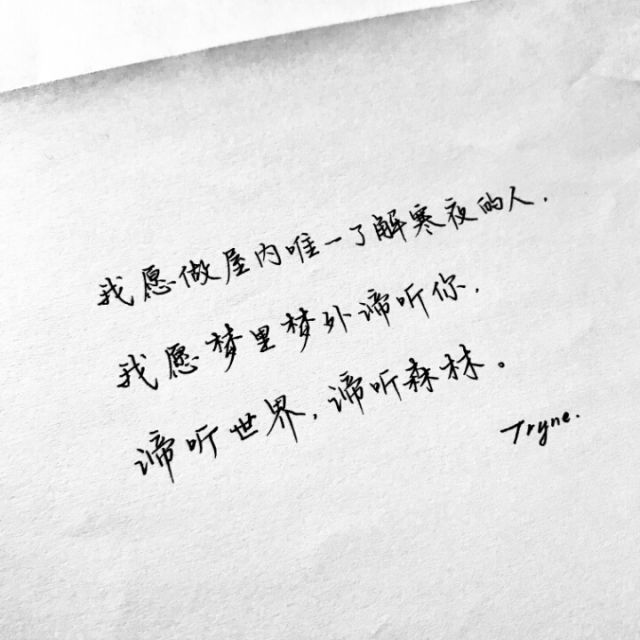 我愿做屋内唯一了解寒夜的人.
我愿梦里梦外谛听你.
谛听世界,谛听森林。
Tryne.